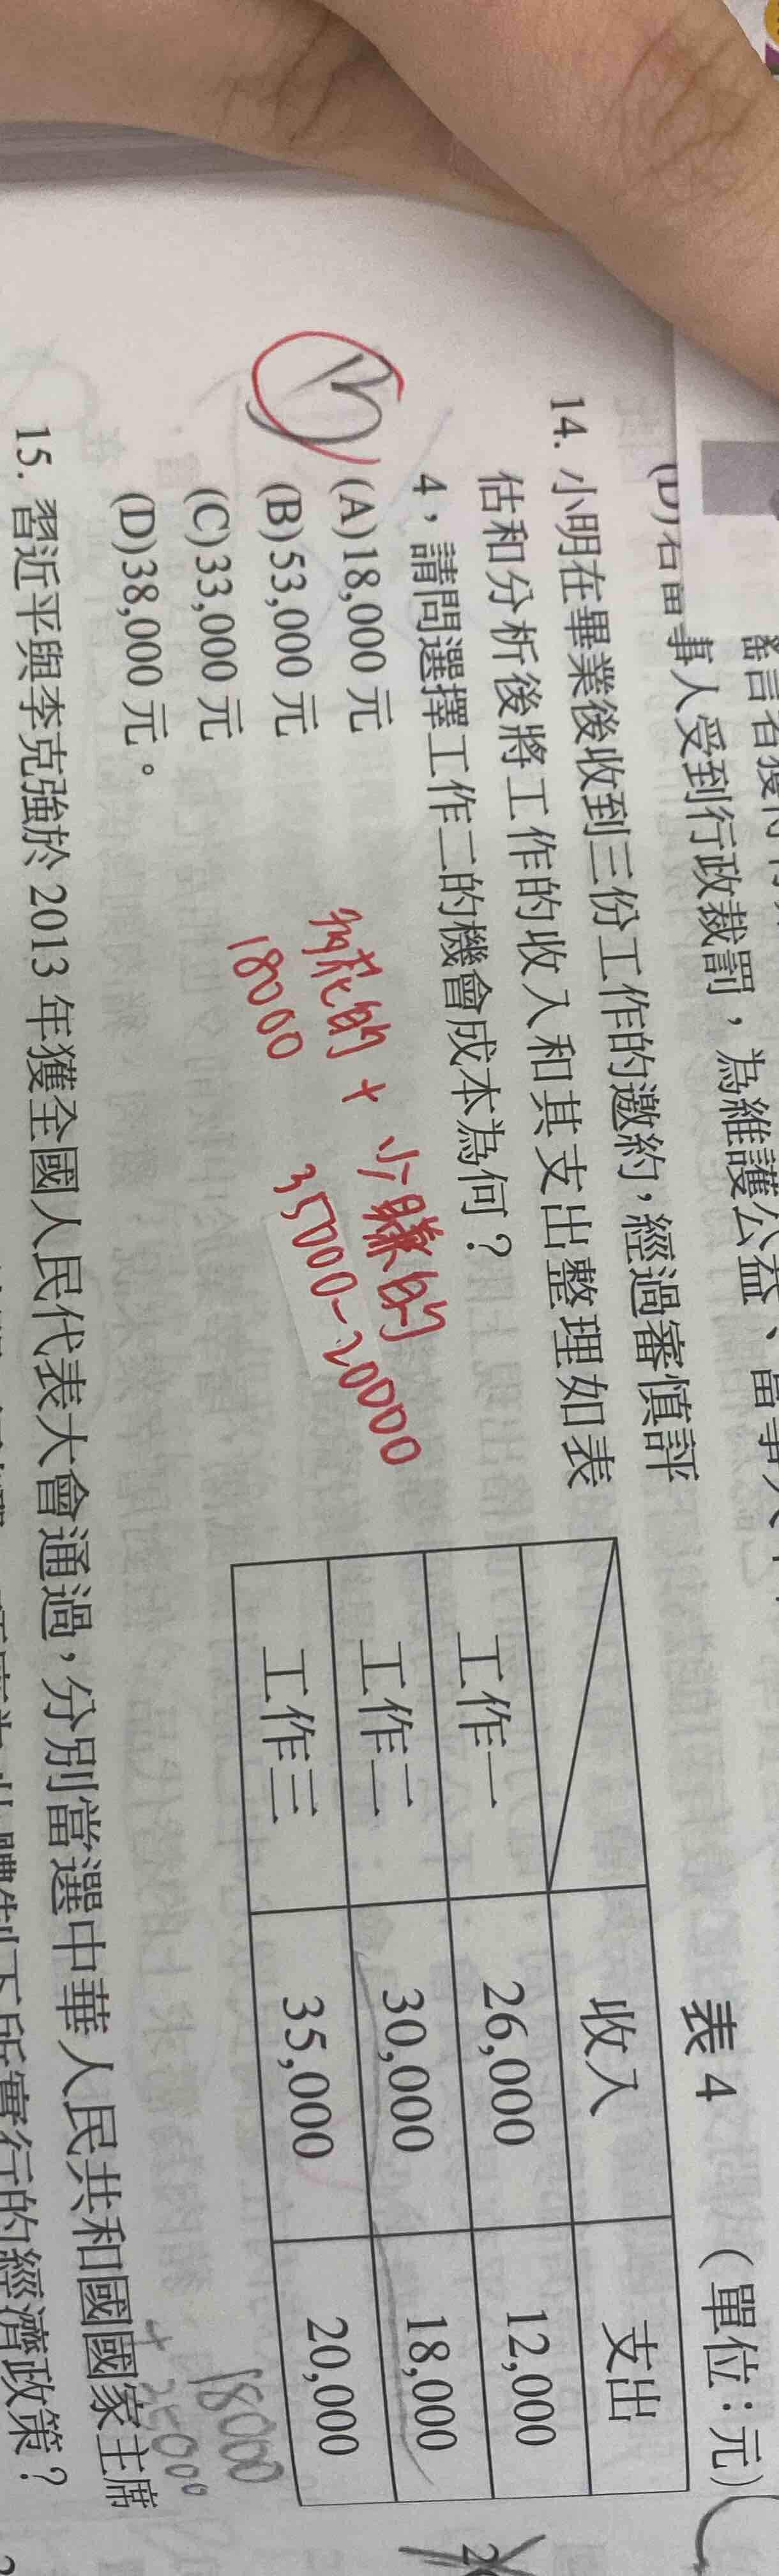 事人受到行政裁罰，為維護公益、當事人
14. 小明在畢業後收到三份工作的邀約，經過審慎評
估和分析後將工作的收入和其支出整理如表
4，請問選擇工作二的機會成本為何？
(A)18,000 元
(B)53,000 元
(C)33,000 元
(D)38,000 元。
B
多花的 + 少賺的
18000 35000-20000
表 4 （單位：元）
收入 支出
工作一 26,000 12,000
工作二 30,000 18,000
工作三 35,000 20,000
18000
+35000
15. 習近平與李克強於 2013 年獲全國人民代表大會通過，分別當選中華人民共和國國家主席
所實行的經濟政策？